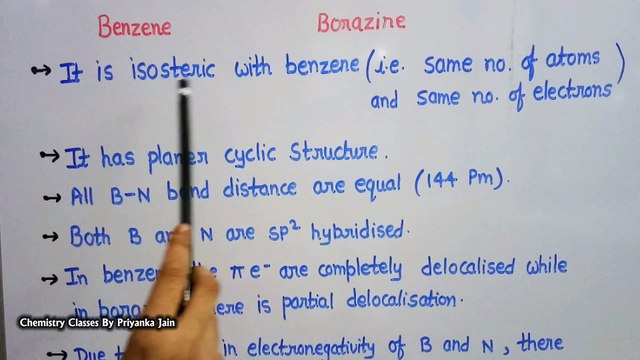 Benzene Borazine
→ It is isosteric with benzene (i.e. same no. of atoms
and same no. of electrons)
→ It has planer cyclic structure.
→ All B-N bond distance are equal (144 Pm).
→ Both B and N are sp² hybridised.
→ In benzene the π e⁻ are completely delocalised while
in there is partial delocalisation.
Chemistry Classes By Priyanka Jain
→ Due in electronegativity of B and N, there